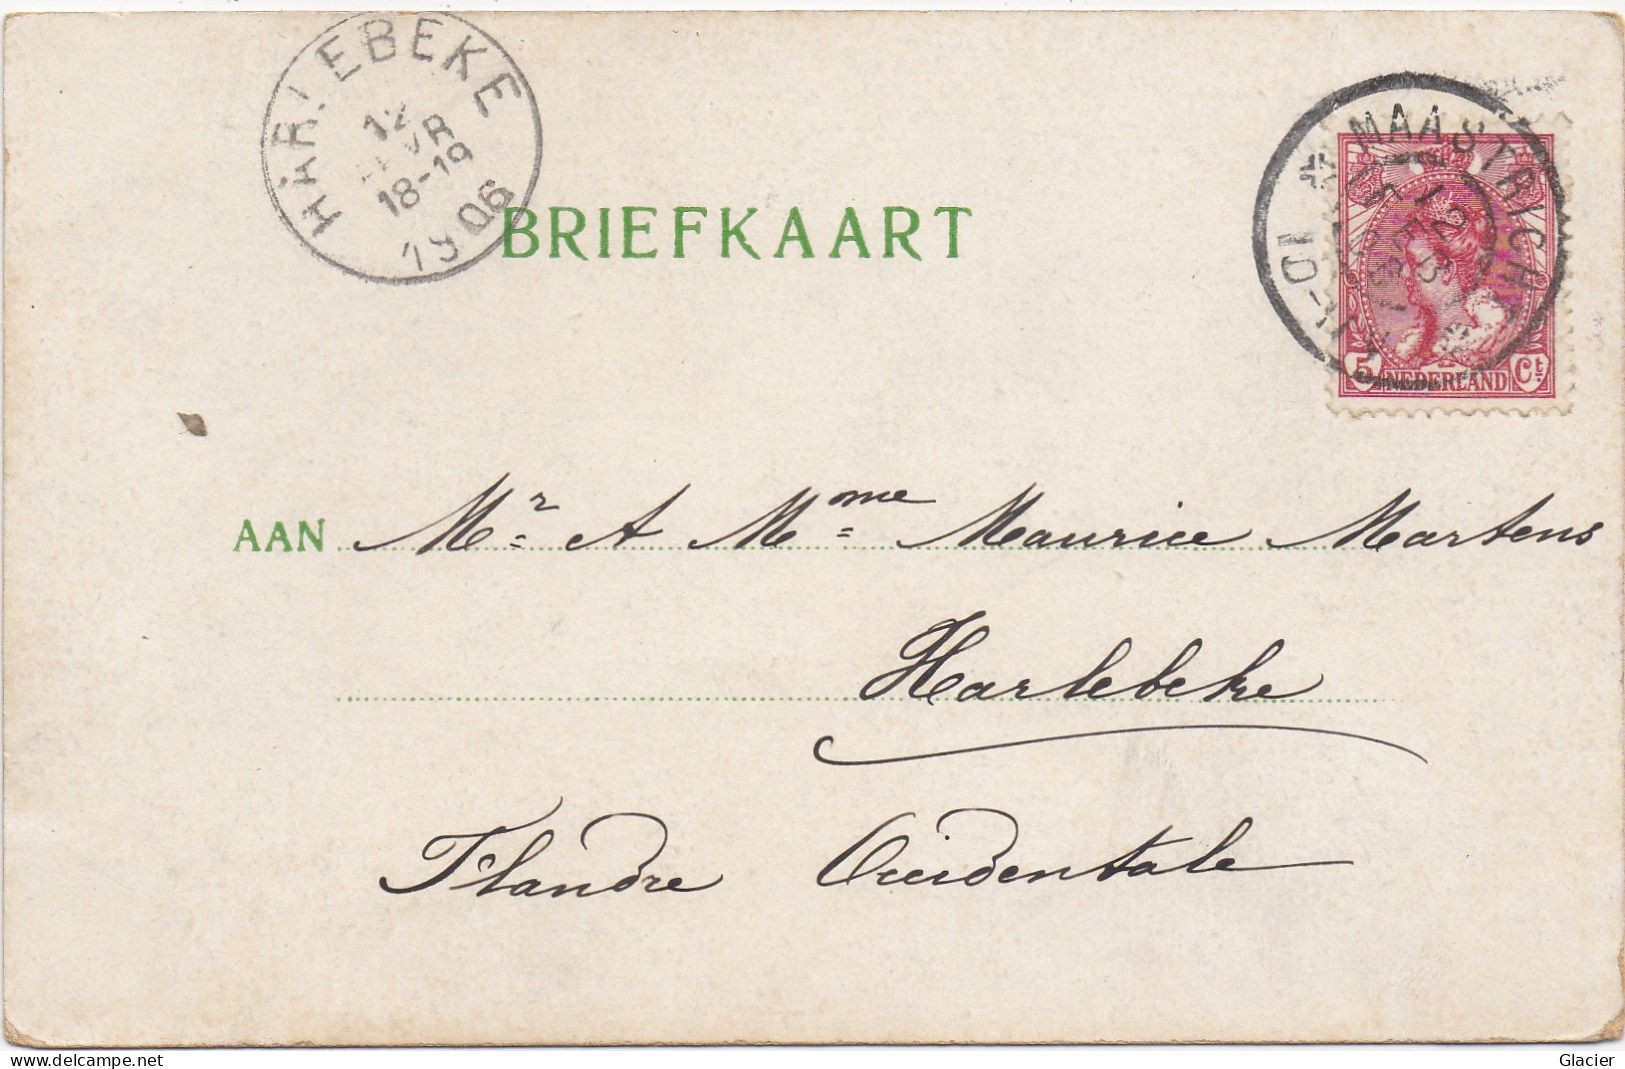 HARLEBEKE
12
FEVR
18-19
1906
BRIEFKAART
MAASTRICHT
12 FEB
5 NEDERLAND Ct
AAN Mr & Mme Maurice Martens
Harlebeke
Flandre Occidentale
delcampe.net
Glacier